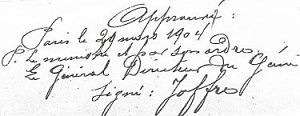 Approuvé :
Paris le 29 mars 1904
P. le ministre et par son ordre
Le Général Directeur du Génie
Signé : Joffre